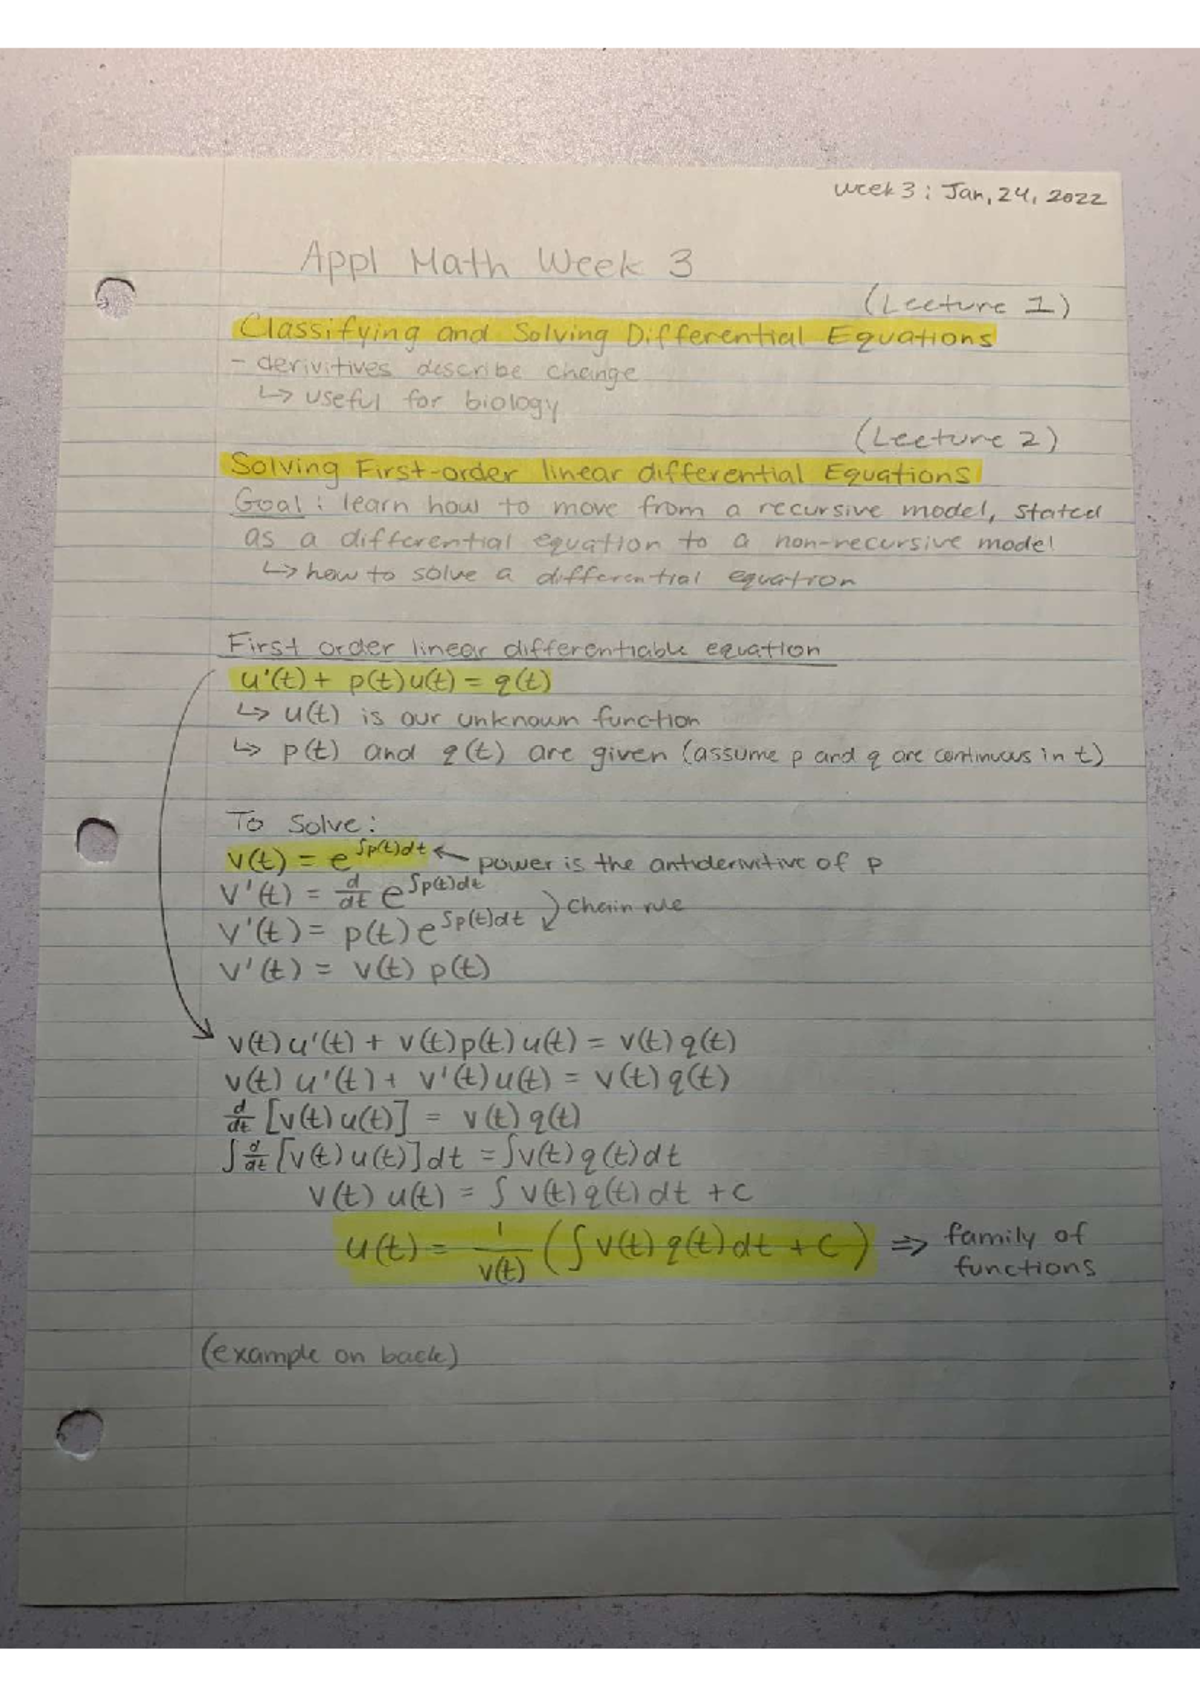 Week 3: Jan, 24, 2022
Appl Math Week 3
(Lecture 1)
Classifying and Solving Differential Equations
- derivitives describe change
↳ useful for biology
(Lecture 2)
Solving First-order linear differential Equations
Goal: learn how to move from a recursive model, stated
as a differential equation to a non-recursive model
↳ how to solve a differential equation
First order linear differentiable equation
u'(t) + p(t)u(t) = q(t)
↳ u(t) is our unknown function
↳ p(t) and q(t) are given (assume p and q are continuous in t)
To Solve:
v(t) = e^∫p(t)dt ← power is the antiderivitive of p
v'(t) = d/dt e^∫p(t)dt
v'(t) = p(t) e^∫p(t)dt Chain rule
v'(t) = v(t) p(t)
v(t) u'(t) + v(t)p(t)u(t) = v(t)q(t)
v(t) u'(t) + v'(t)u(t) = v(t)q(t)
d/dt [v(t)u(t)] = v(t)q(t)
∫ d/dt [v(t)u(t)]dt = ∫v(t)q(t)dt
v(t) u(t) = ∫ v(t)q(t)dt + C
u(t) = 1/v(t) (∫ v(t)q(t)dt + C) ⇒ family of
functions
(example on back)